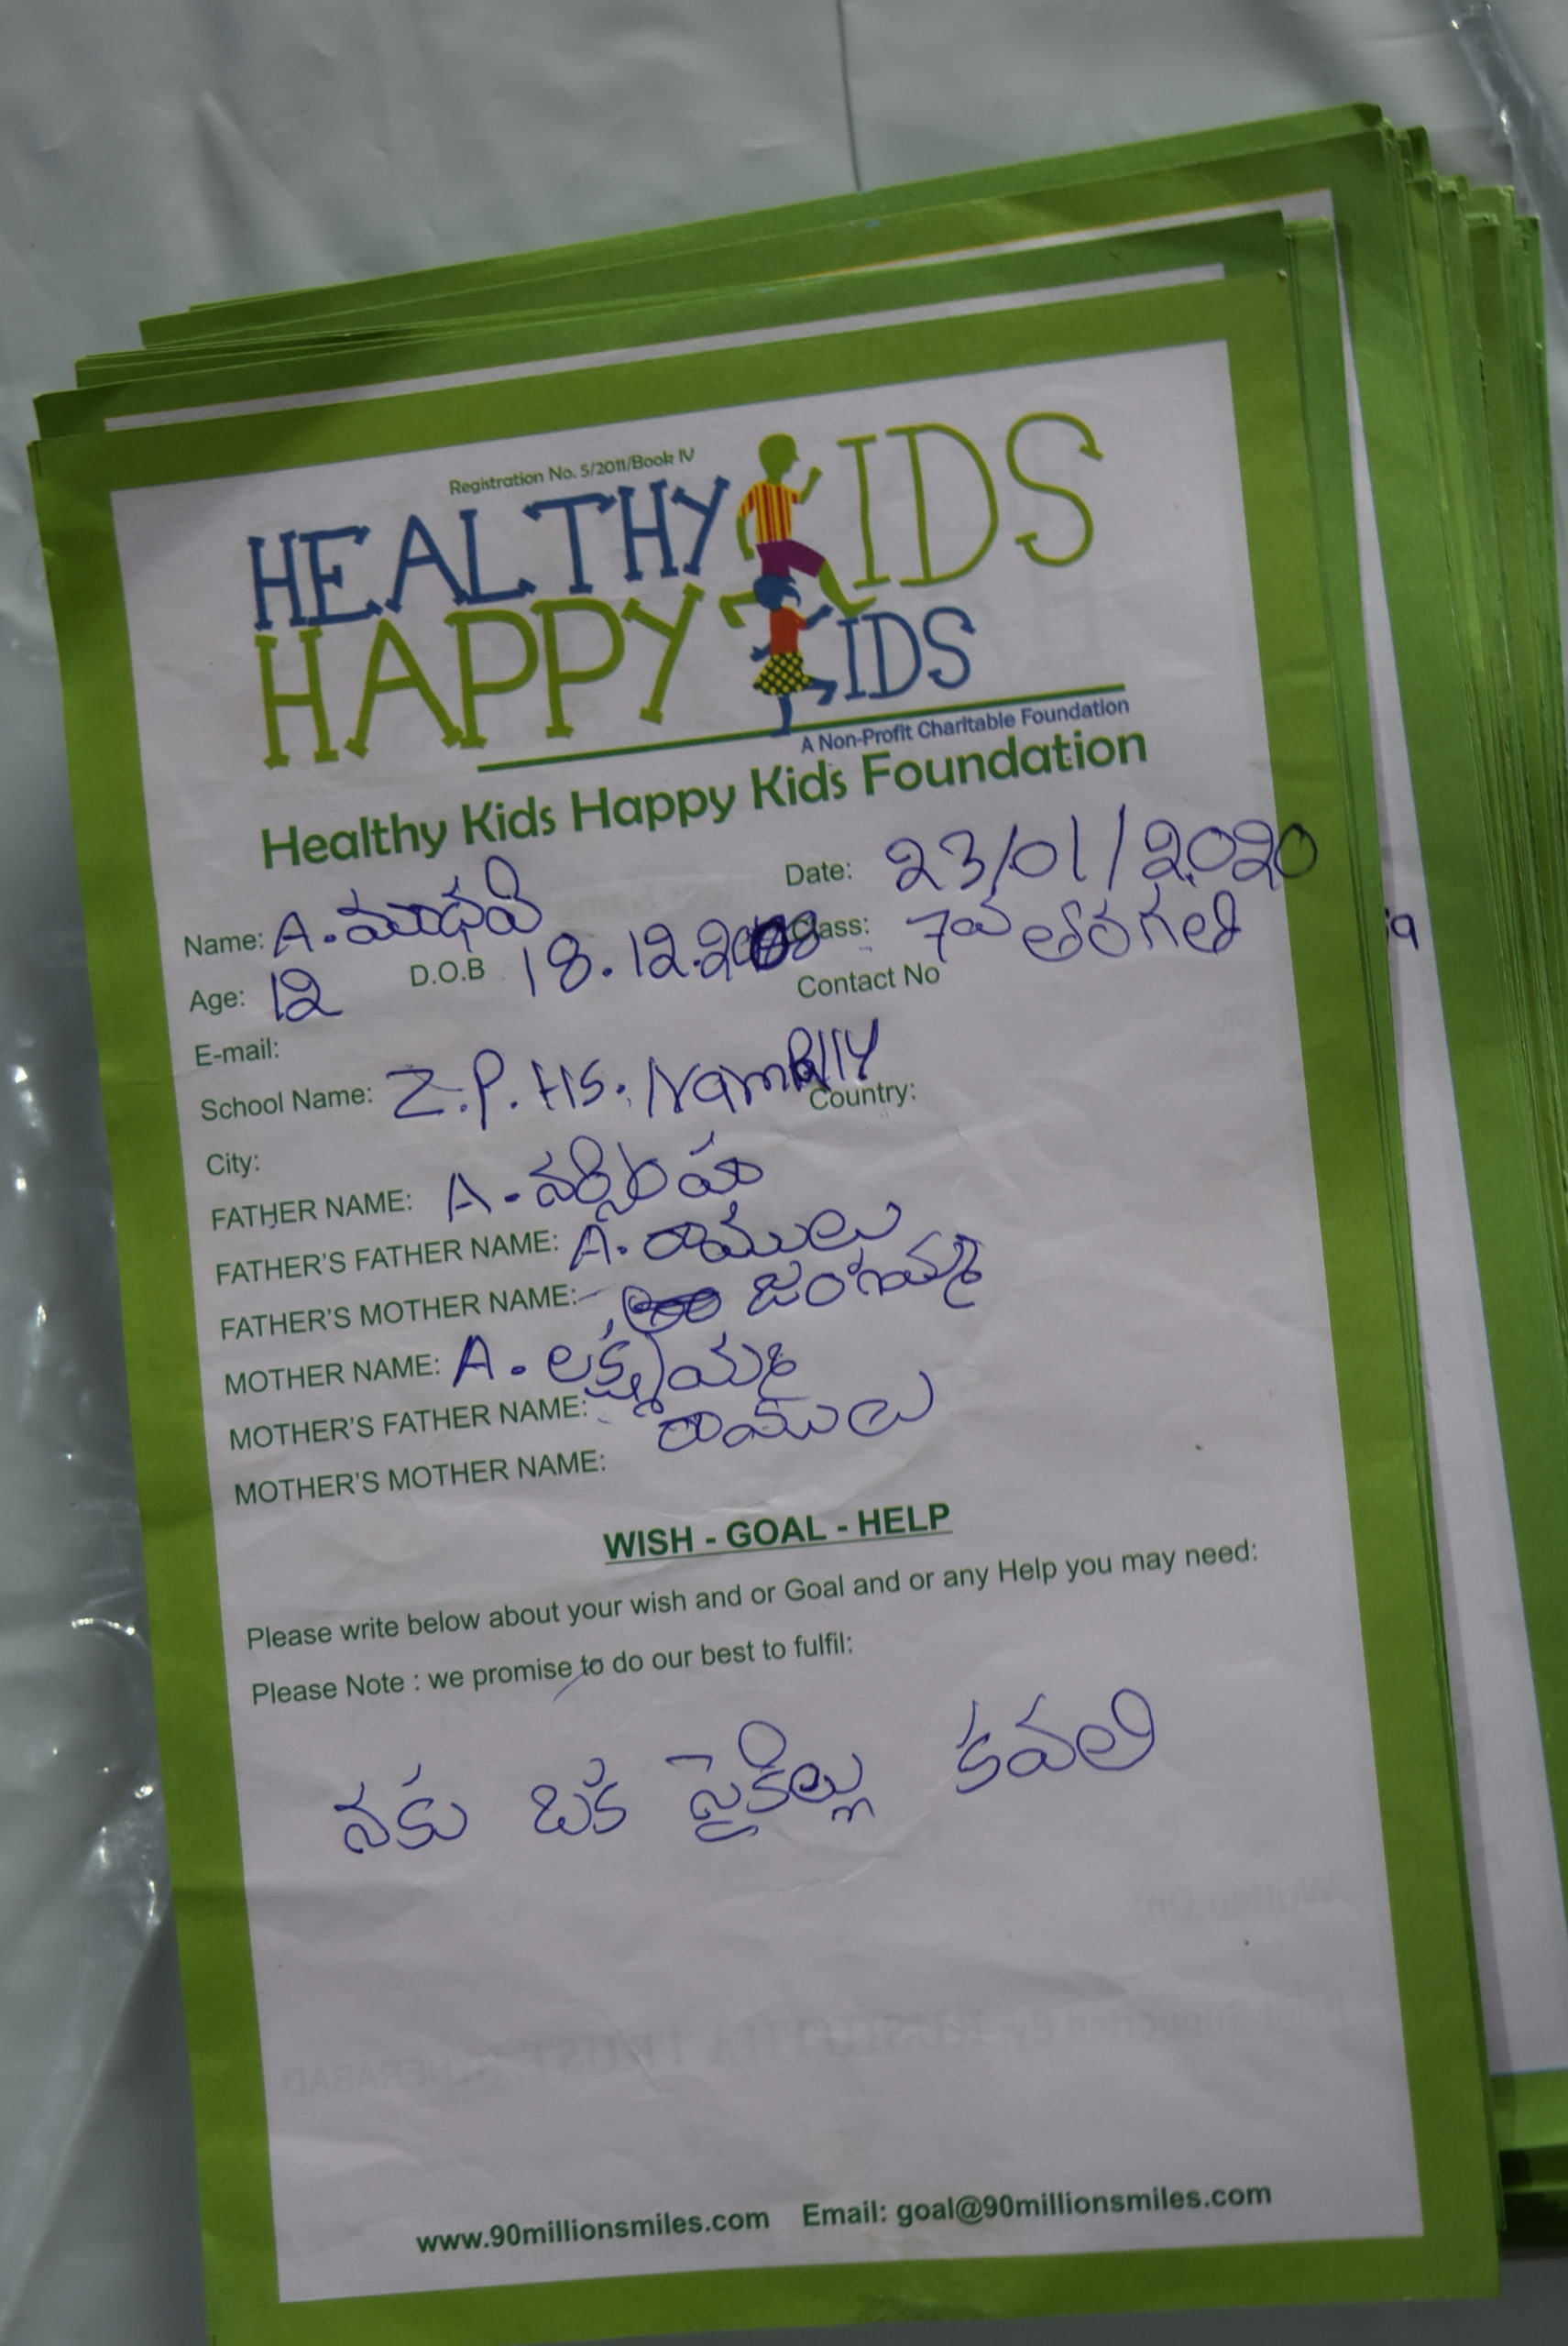 Registration No. 5/2011/Book IV
HEALTHY KIDS
HAPPY KIDS
A Non-Profit Charitable Foundation
Healthy Kids Happy Kids Foundation
Date: 23/01/2020
Name: A. మాధవి
Class: 7వ తరగతి
Age: 12 D.O.B 18.12.2008
Contact No
E-mail:
School Name: Z.P.HS. Nampally
Country:
City:
FATHER NAME: A. నర్సింహ
FATHER'S FATHER NAME: A. రాములు
FATHER'S MOTHER NAME: జంగమ్మ
MOTHER NAME: A. లక్ష్మమ్మ
MOTHER'S FATHER NAME: రాములు
MOTHER'S MOTHER NAME:
WISH - GOAL - HELP
Please write below about your wish and or Goal and or any Help you may need:
Please Note : we promise to do our best to fulfil:
నకు ఒక సైకిల్లు కవలి
www.90millionsmiles.com Email: goal@90millionsmiles.com